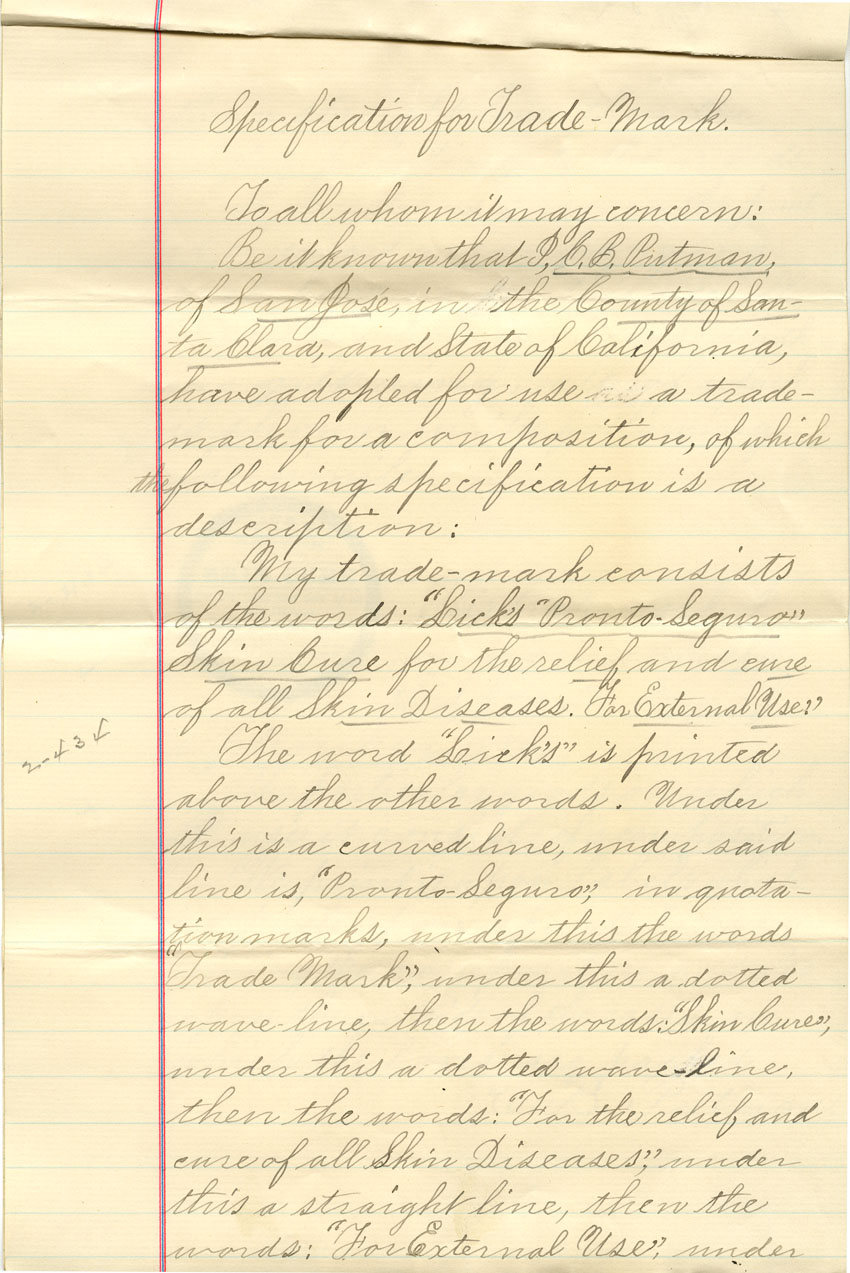 Specification for Trade-Mark.
To all whom it may concern:
Be it known that I, C. B. Putman,
of San José, in the County of San-
ta Clara, and State of California,
have adopted for use as a trade-
mark for a composition, of which
the following specification is a
description:
My trade-mark consists
of the words: "Lick's "Pronto-Seguro"
Skin Cure for the relief and cure
of all Skin Diseases. For External Use."
2-434
The word "Lick's" is printed
above the other words. Under
this is a curved line, under said
line is, "Pronto-Seguro", in quota-
tion marks, under this the words
"Trade Mark", under this a dotted
wave-line, then the words: "Skin Cure",
under this a dotted wave-line,
then the words: "For the relief and
cure of all Skin Diseases", under
this a straight line, then the
words: "For External Use", under